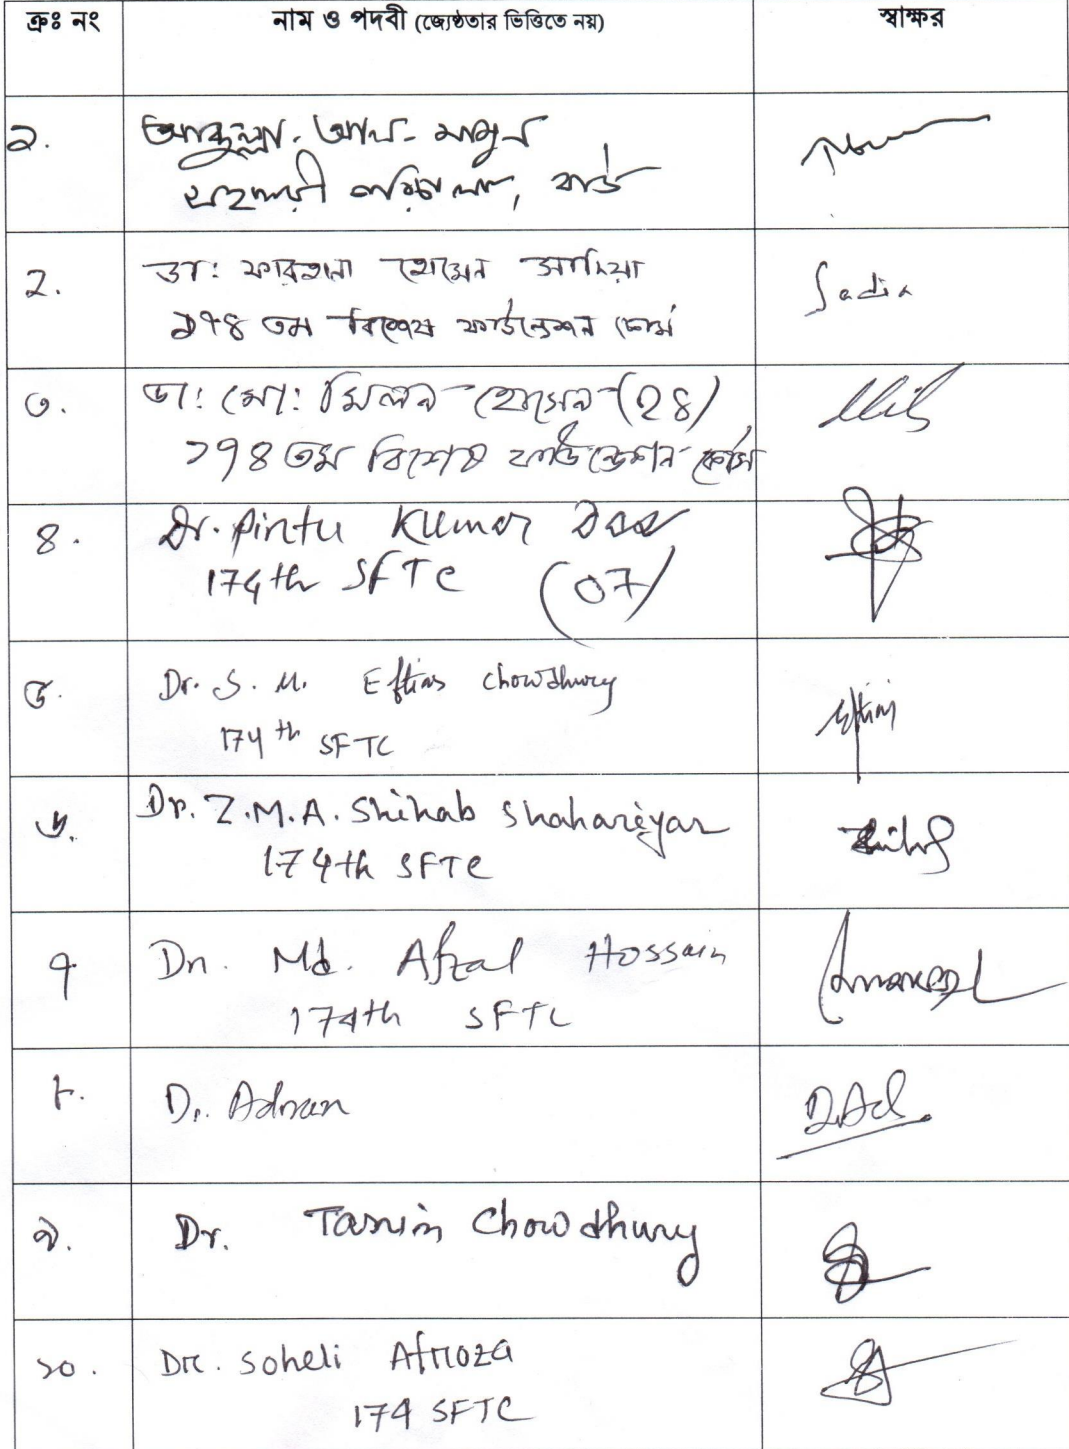 ক্রঃ নং নাম ও পদবী (জ্যেষ্ঠতার ভিত্তিতে নয়) স্বাক্ষর
১. আব্দুল্লা-আল-মামুন
সহকারী পরিচালক, বার্ড
২. ডা: ফারহানা হোসেন সাদিয়া Sadia
১৭৪ তম বিশেষ ফাউন্ডেশন কোর্স
৩. ডা: মো: মিলন হোসেন (২৪)
১৭৪ তম বিশেষ ফাউন্ডেশন কোর্স
৪. Dr. Pintu Kumar Das
174th SFTC (07)
৫. Dr. S. M. Eftias Chowdhury
174th SFTC
৬. Dr. Z.M.A. Shihab Shahareyar
174th SFTC
৭ Dr. Md. Afzal Hossain
174th SFTC
৮. Dr. Adnan
৯. Dr. Tasnim Chowdhury
১০. Dr. Soheli Afroza
174 SFTC